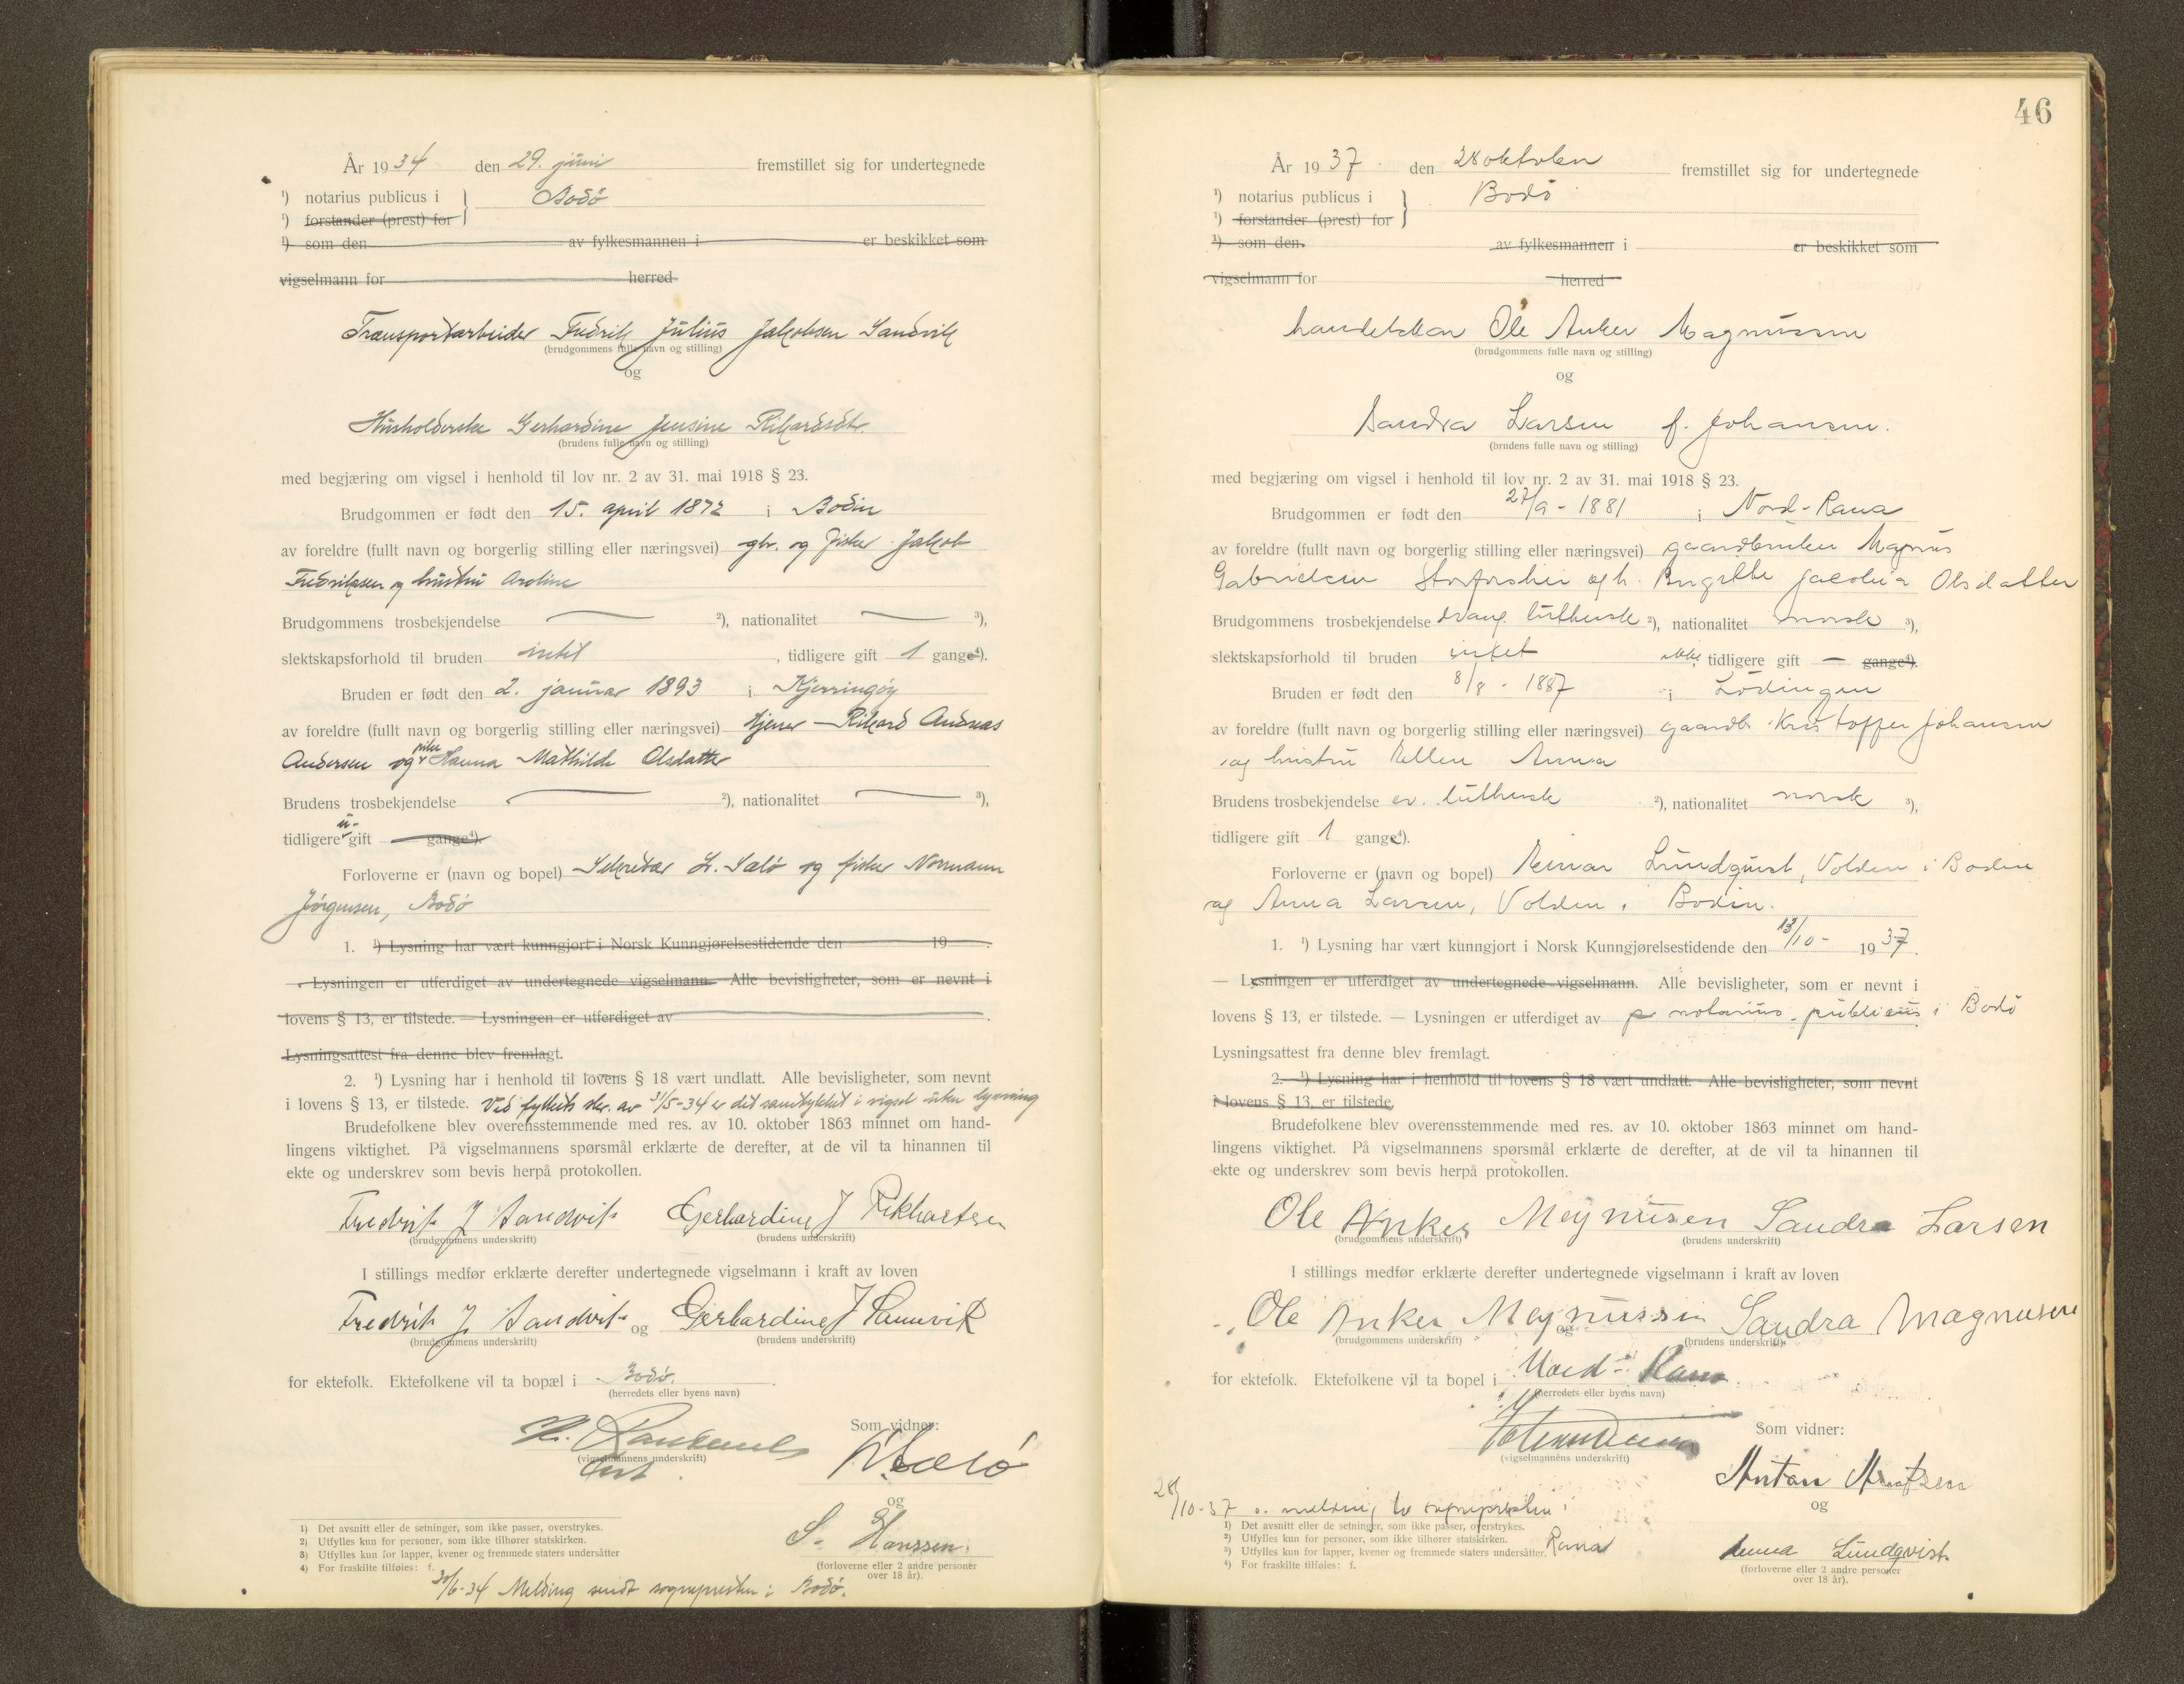 År 1934 den 29. juni fremstillet sig for undertegnede
¹) notarius publicus i } Bodø
¹) forstander (prest) for
¹) som den av fylkesmannen i er beskikket som
vigselmann for herred
Transportarbeider Fredrik Julius Jakobsen Sandvik
(brudgommens fulle navn og stilling)
og
Husholderske Gerhardine Jensine Rikardsdtr.
(brudens fulle navn og stilling)
med begjæring om vigsel i henhold til lov nr. 2 av 31. mai 1918 § 23.
Brudgommen er født den 15. april 1872 i Bodin
av foreldre (fullt navn og borgerlig stilling eller næringsvei) gbr. og fisker Jakob
Fredriksen og hustru Aroline
Brudgommens trosbekjendelse — ²), nationalitet — ³),
slektskapsforhold til bruden intet, tidligere gift 1 gange⁴).
Bruden er født den 2. januar 1893 i Kjerringøy
av foreldre (fullt navn og borgerlig stilling eller næringsvei) tjener Rikard Andreas
Andersen og pike Hanna Mathilde Olsdatter
Brudens trosbekjendelse — ²), nationalitet — ³),
tidligere u-gift — gange⁴).
Forloverne er (navn og bopel) Sekretær L. Salø og fisker Normann
Jørgensen, Bodø
1. ¹) Lysning har vært kunngjort i Norsk Kunngjørelsestidende den 19 .
— Lysningen er utferdiget av undertegnede vigselmann. Alle bevisligheter, som er nevnt i
lovens § 13, er tilstede. — Lysningen er utferdiget av .
Lysningsattest fra denne blev fremlagt.
2. ¹) Lysning har i henhold til lovens § 18 vært undlatt. Alle bevisligheter, som nevnt
i lovens § 13, er tilstede. Ved fylkets skr. av 31/5-34 er det samtykket i vigsel uten lysning
Brudefolkene blev overensstemmende med res. av 10. oktober 1863 minnet om hand-
lingens viktighet. På vigselmannens spørsmål erklærte de derefter, at de vil ta hinannen til
ekte og underskrev som bevis herpå protokollen.
Fredrik J Sandvik Gerhardine J Rikhartsen
(brudgommens underskrift) (brudens underskrift)
I stillings medfør erklærte derefter undertegnede vigselmann i kraft av loven
Fredrik J. Sandvik og Gerhardine J Sannvik
(brudgommens underskrift) (brudens underskrift)
for ektefolk. Ektefolkene vil ta bopæl i Bodø.
(herredets eller byens navn)
Som vidner:
(vigselmannens underskrift)
og
S. Hanssen.
(forloverne eller 2 andre personer
over 18 år).
1) Det avsnitt eller de setninger, som ikke passer, overstrykes.
2) Utfylles kun for personer, som ikke tilhører statskirken.
3) Utfylles kun for lapper, kvener og fremmede staters undersåtter
4) For fraskilte tilføies: f.
30/6-34 Melding sendt sognepresten i Bodø.
46
År 1937 den 28 oktober fremstillet sig for undertegnede
¹) notarius publicus i } Bodø
¹) forstander (prest) for
¹) som den av fylkesmannen i er beskikket som
vigselmann for herred
Ole Anker Magnussen
(brudgommens fulle navn og stilling)
og
Sandra Larsen f. Johansen.
(brudens fulle navn og stilling)
med begjæring om vigsel i henhold til lov nr. 2 av 31. mai 1918 § 23.
Brudgommen er født den 27/9 - 1881 i Nord-Rana
av foreldre (fullt navn og borgerlig stilling eller næringsvei) gaardbruker Magnus
Gabrielsen Storforshei og h. Birgitte Jacobia Olsdatter
Brudgommens trosbekjendelse evang. luthersk ²), nationalitet norsk ³),
slektskapsforhold til bruden intet ikke tidligere gift — gange⁴).
Bruden er født den 8/8 - 1887 i Lødingen
av foreldre (fullt navn og borgerlig stilling eller næringsvei) gaardb. Kristoffer Johansen
og hustru Ellen Anna
Brudens trosbekjendelse ev. luthersk ²), nationalitet norsk ³),
tidligere gift 1 gange⁴).
Forloverne er (navn og bopel) Reinar Lundquist, Volden i Bodin
og Anna Larsen, Volden i Bodin.
1. ¹) Lysning har vært kunngjort i Norsk Kunngjørelsestidende den 13/10 - 1937.
— Lysningen er utferdiget av undertegnede vigselmann. Alle bevisligheter, som er nevnt i
lovens § 13, er tilstede. — Lysningen er utferdiget av notarius publicus i Bodø
Lysningsattest fra denne blev fremlagt.
2. ¹) Lysning har i henhold til lovens § 18 vært undlatt. Alle bevisligheter, som nevnt
i lovens § 13, er tilstede.
Brudefolkene blev overensstemmende med res. av 10. oktober 1863 minnet om hand-
lingens viktighet. På vigselmannens spørsmål erklærte de derefter, at de vil ta hinannen til
ekte og underskrev som bevis herpå protokollen.
Ole Anker Megnusen Sandra Larsen
(brudgommens underskrift) (brudens underskrift)
I stillings medfør erklærte derefter undertegnede vigselmann i kraft av loven
Ole Anker Megnussin og Sandra Magnusen
(brudgommens underskrift) (brudens underskrift)
for ektefolk. Ektefolkene vil ta bopel i Nord-Rana
(herredets eller byens navn)
Som vidner:
(vigselmannens underskrift)
Anton Arntzen
og
28/10-37 s. melding to sognepresten i
Rana
Anna Lundqvist
(forloverne eller 2 andre personer
over 18 år).
1) Det avsnitt eller de setninger, som ikke passer, overstrykes.
2) Utfylles kun for personer, som ikke tilhører statskirken.
3) Utfylles kun for lapper, kvener og fremmede staters undersåtter.
4) For fraskilte tilføies: f.